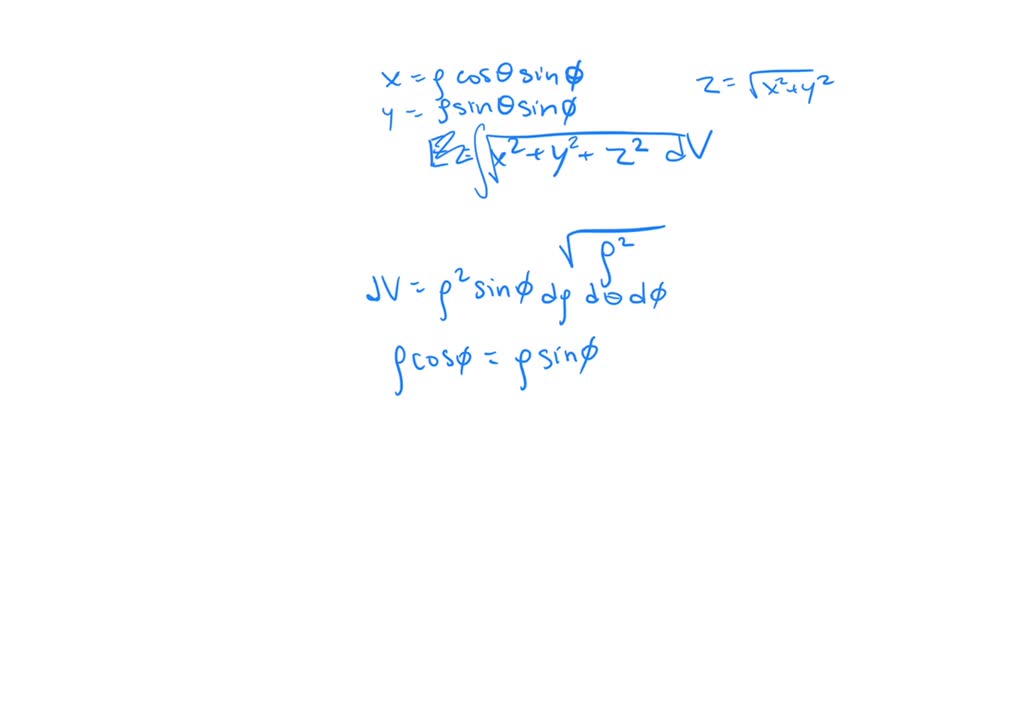 x = ρ cosθ sinϕ
z = √x²+y²
y = ρ sinθ sinϕ
∫√x²+y²+z² dV
√ρ²
dV = ρ² sinϕ dρ dθ dϕ
ρ cosϕ = ρ sinϕ